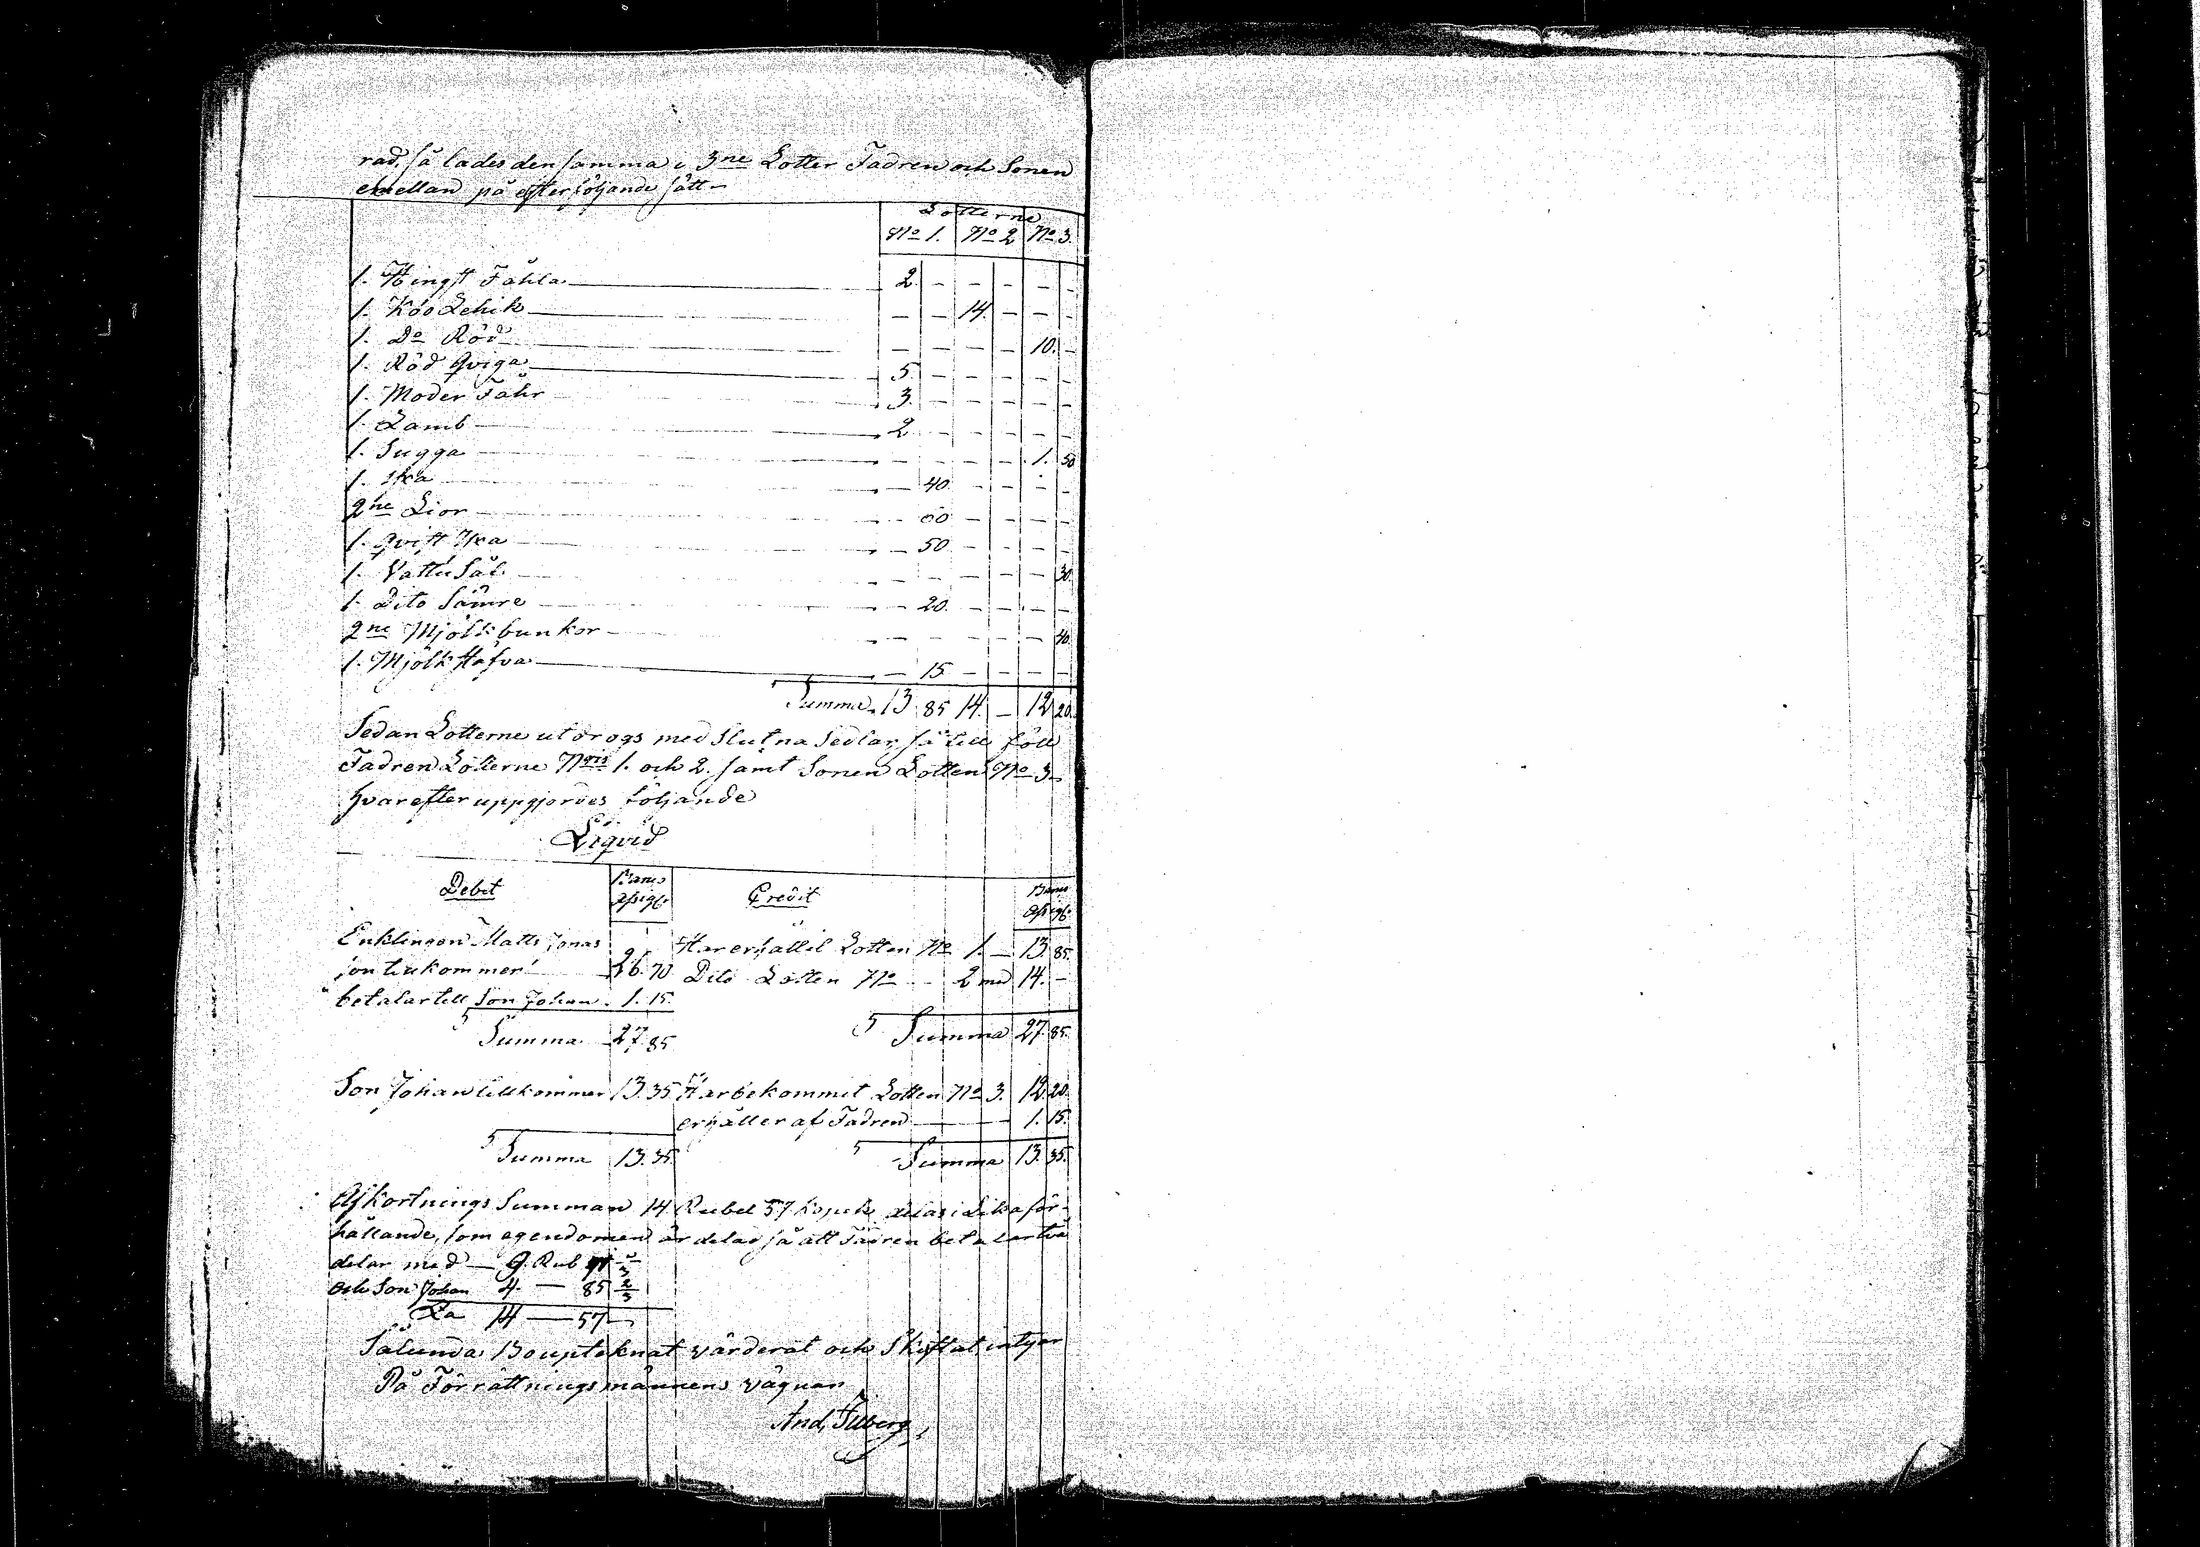 rad, så lades den samma i 3ne Lotter Fadren och Sonen
emellan på efterföljande sätt —
Lotterne
No 1. No 2 No 3.
1. Hingst Fåhla — 2. — — — — —
1. Koo Lehik — — — 14. — — —
1. Do Röd — — — — — 10. —
1. Röd Qviga — 5. — — — — —
1. Moder Fåhr — 3. — — — — —
1. Lamb — 2. — — — — —
1. Sugga — — — — — 1. 50
1. Yxa — — 40. — — — —
2ne Lior — — 60 — — — —
1. Qvist Yxa — — 50 — — — —
1. Vattu Så — — — — — — 30.
1. Dito Sämre — — 20. — — — —
2ne Mjölkbunkor — — — — — — 40.
1. Mjölk Håfva — — 15 — — — —
Summa 13 85 14. — 12 20.
Sedan Lotterne utdrogs med Slutna Sedlar, så till föll
Fadren Lotterne Nris 1. och 2. samt Sonen Lotten No 3.
hvarefter uppgjordes följande
Liqvid
Debit Banco Assign. Credit Banco Assign.
Enklingen Matts Jonas
son tillkommer 26. 70 Har erhållit Lotten No 1. — 13. 85.
betalar till Son Johan 1. 15. Dito Lotten No 2 med 14. —
Summa 27. 85 Summa 27. 85.
Son Johan tillkommer 13. 35 Har bekommit Lotten No 3. 12. 20.
erhåller af Fadren — 1. 15.
Summa 13. 35. Summa 13. 35.
Afkortnings Summan 14 Rubel 57 Kopek delas i Lika för-
hållande, som egendomen är delad så att Fadren betalar två
delar med — 9. Rub 71 1/3
och Son Johan 4. — 85 2/3
14 — 57 —
Sålunda Bouptecknat värderat och Skiftat intygar
På Förrättningsmännens vägnar
And. Tilberg